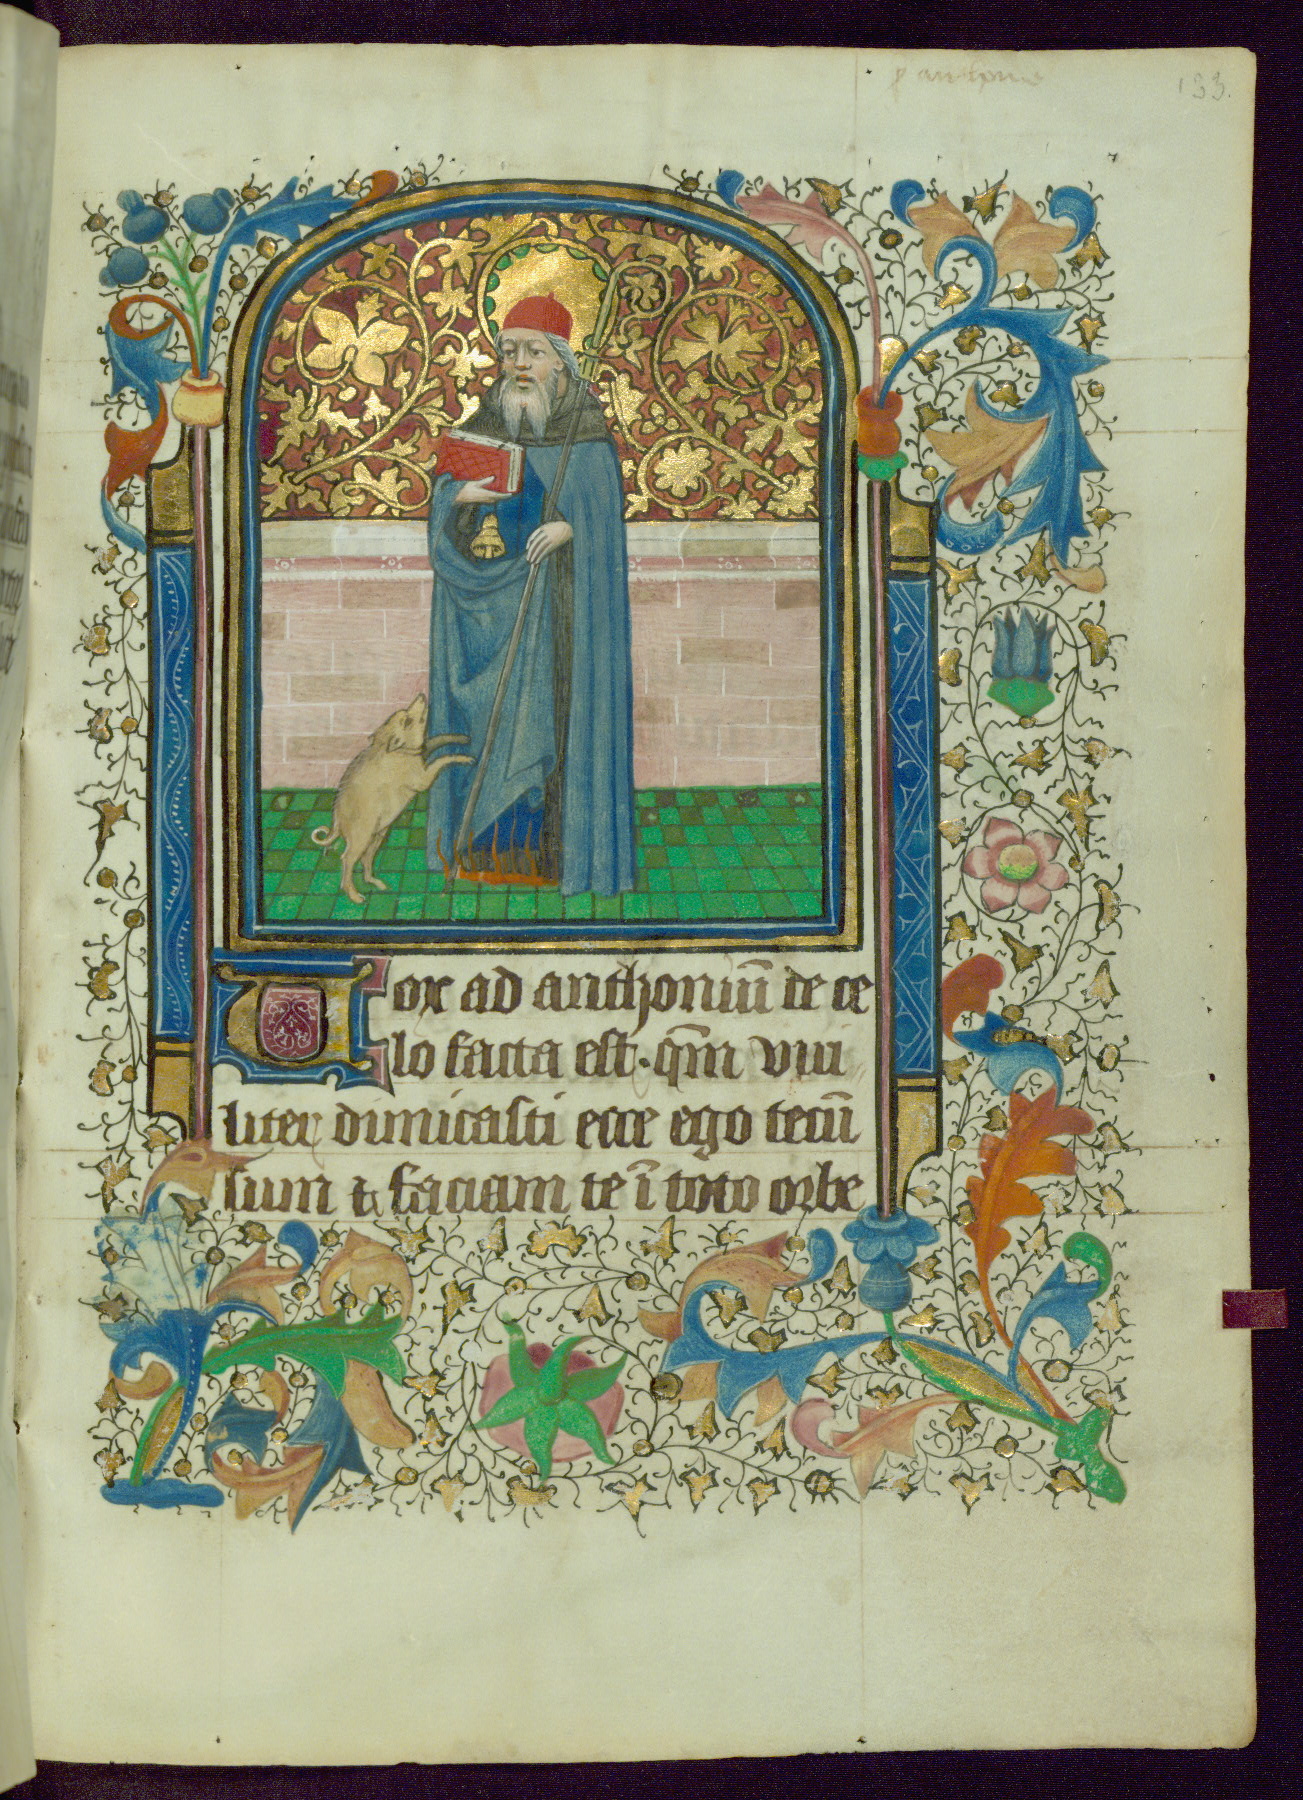 s anthoine
133.
Vox ad anthoniū de ce
lo facta est. qm̄ viri
liter dimicasti ecce ego tecū
sum & faciam te ī toto orbe